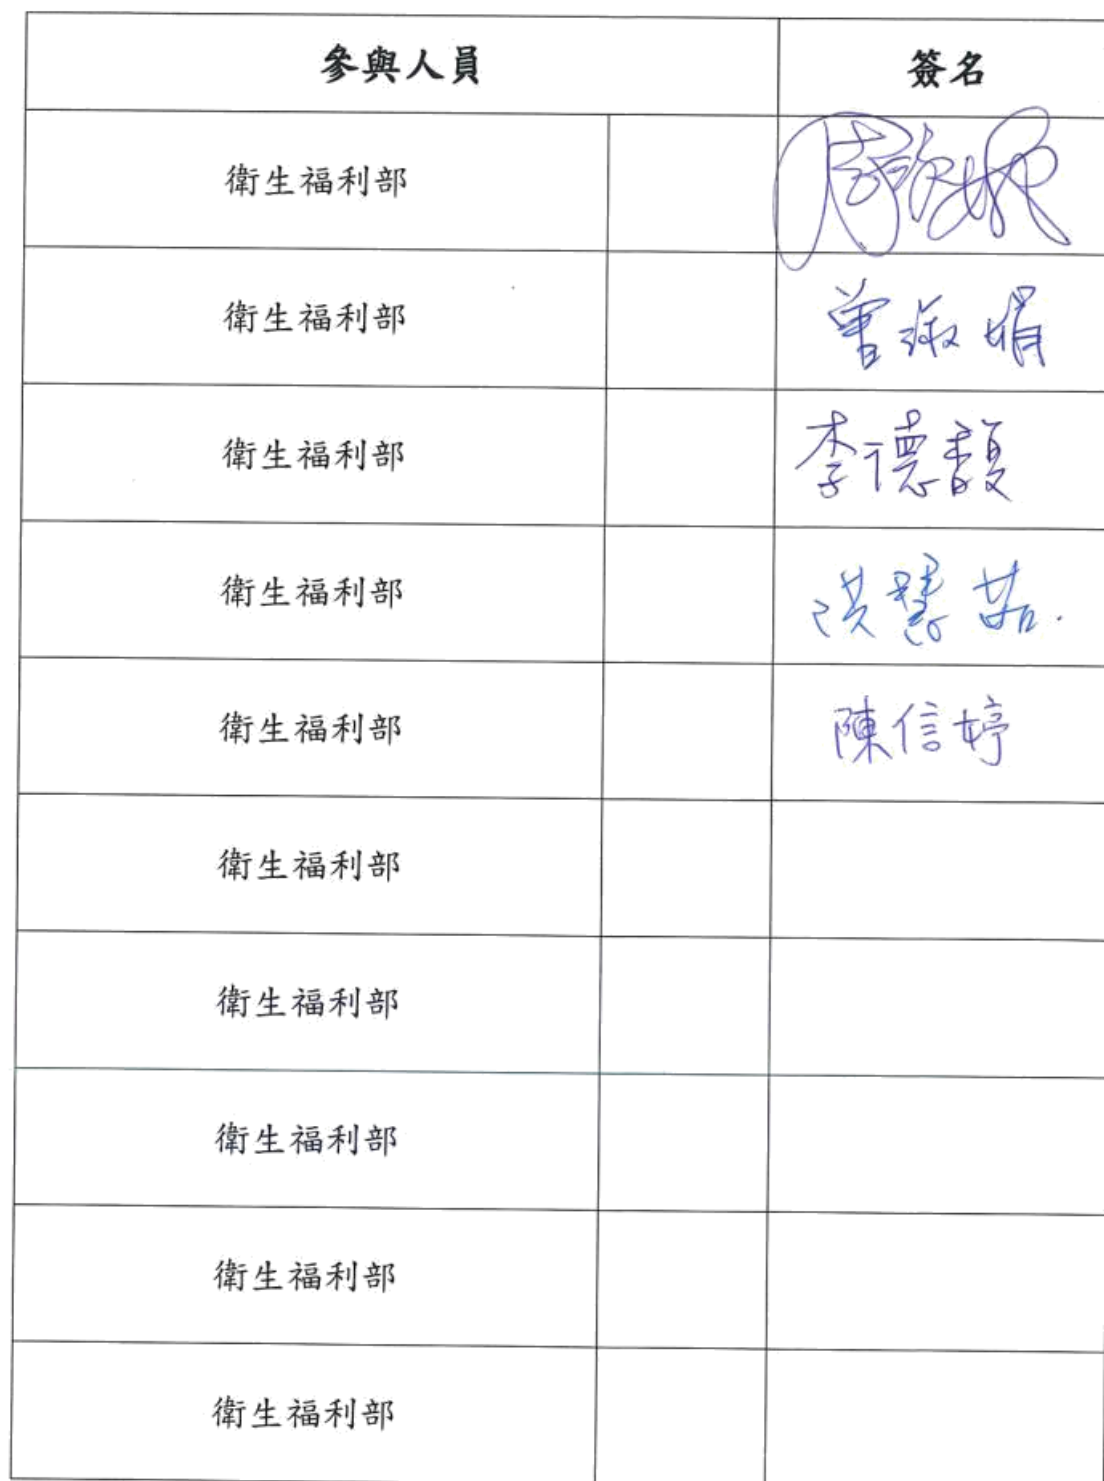 參與人員 簽名
衛生福利部
衛生福利部 曾淑娟
衛生福利部 李德馥
衛生福利部 洪慧茹
衛生福利部 陳信婷
衛生福利部
衛生福利部
衛生福利部
衛生福利部
衛生福利部